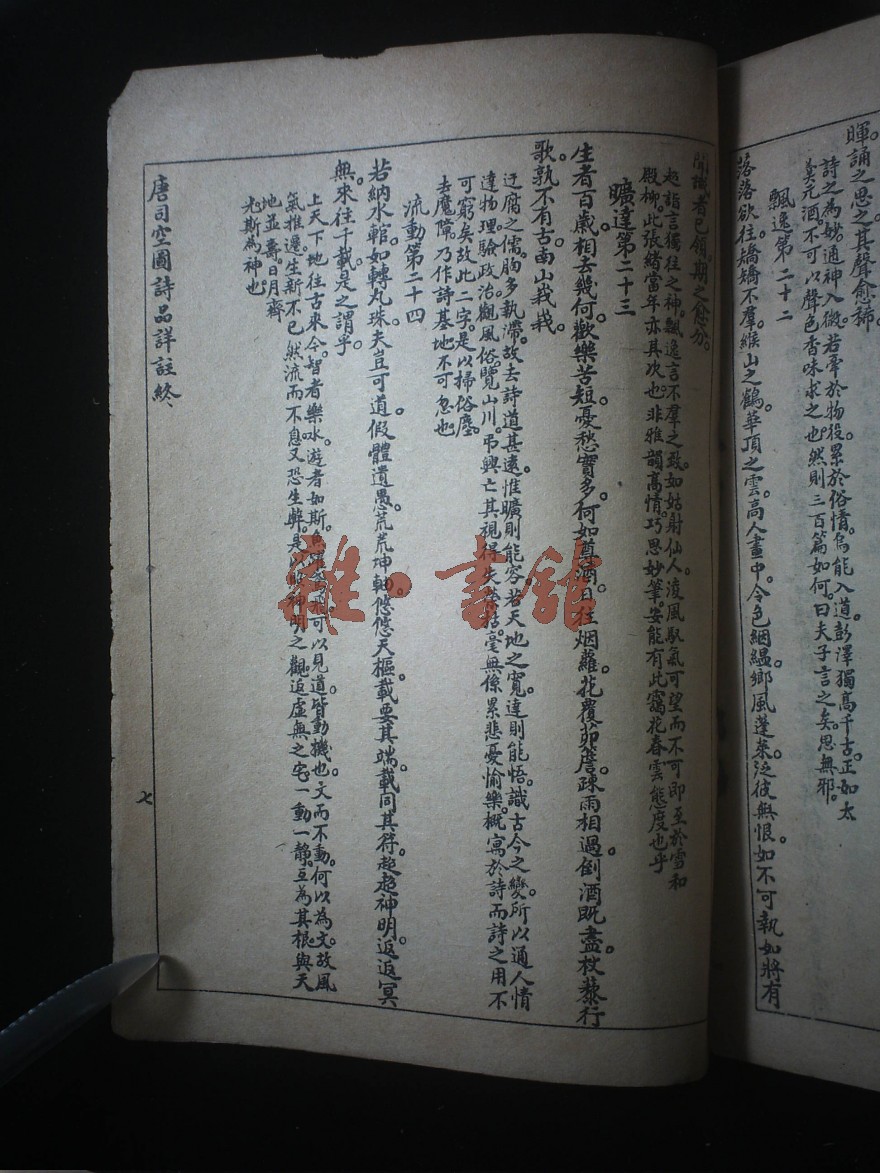 暉。誦之思之。其聲愈稀。
詩之為妙。通神入微。若牽於物役。累於俗情。烏能入道。彭澤獨高千古。正如太
羹元酒。不可以聲色香味求之也。然則三百篇如何。曰夫子言之矣。思無邪。
飄逸第二十二
落落欲往。矯矯不羣。緱山之鶴。華頂之雲。高人畫中。令色絪縕。鄉風蓬萊。泛彼無恨。如不可執。如將有
聞。識者已領。期之愈分。
起詣言獨往之神。飄逸言不羣之致。如姑射仙人。淩風馭氣。可望而不可即。至於雪和
殿柳。此張緒當年。亦其次也。非雅韻高情。巧思妙筆。安能有此靄花春雲態度也乎
曠達第二十三
生者百歲。相去幾何。歡樂苦短。憂愁實多。何如尊酒。日往烟蘿。花覆茆簷。疎雨相過。倒酒既盡。杖藜行
歌。孰不有古。南山峩峩。
迂腐之儒。胸多執滯。故去詩道甚遠。惟曠則能容。若天地之寬。達則能悟。識古今之變。所以通人情
達物理。驗政治。觀風俗。覽山川。弔興亡。其視得失榮枯。毫無係累。悲憂愉樂。概寓於詩。而詩之用不
可窮矣。故此二字。是以掃俗塵。
去魔障。乃作詩基地。不可忽也
流動第二十四
若納水輨。如轉丸珠。夫豈可道。假體遺愚。荒荒坤軸。悠悠天樞。載要其端。載同其符。超超神明。返返冥
無。來往千載。是之謂乎。
上天下地。往古來今。智者樂水。遊者如斯。魚躍鳶飛。可以見道。皆動機也。文而不動。何以為文。故風
氣推邊。生新不已。然流而不息。又恐生弊。是以 神明之觀。返虛無之宅。一動一靜。互為其根。與天
地並壽。日月齊
光。斯為神也。
唐司空圖詩品詳註終
七
雜·書館